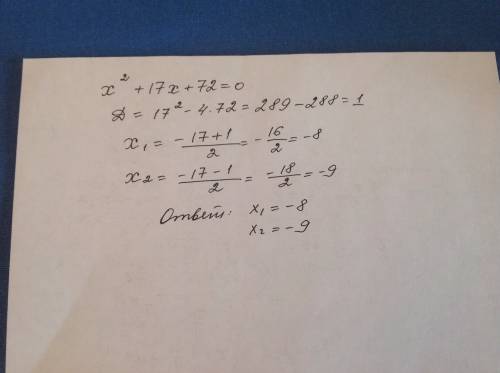 x² + 17x + 72 = 0
D = 17² - 4·72 = 289 - 288 = 1
x₁ = (-17+1)/2 = -16/2 = -8
x₂ = (-17-1)/2 = -18/2 = -9
Ответ: x₁ = -8
x₂ = -9